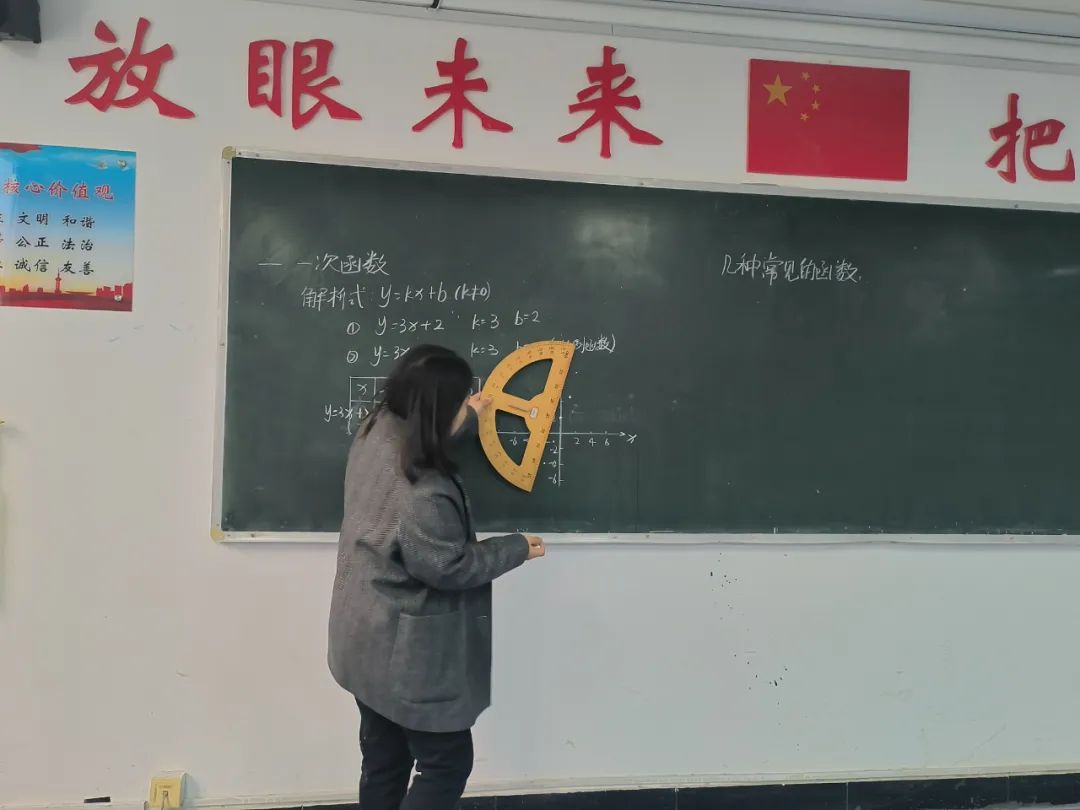 放眼未来 把
核心价值观
文明 和谐
公正 法治
诚信 友善
几种常见的函数.
一 一次函数
解析式: y=kx+b (k≠0)
① y=3x+2 k=3 b=2
② y=3x k=3 b 例函数)
x
y=3x+2
-6 2 4 6 x
-2
-4
-6